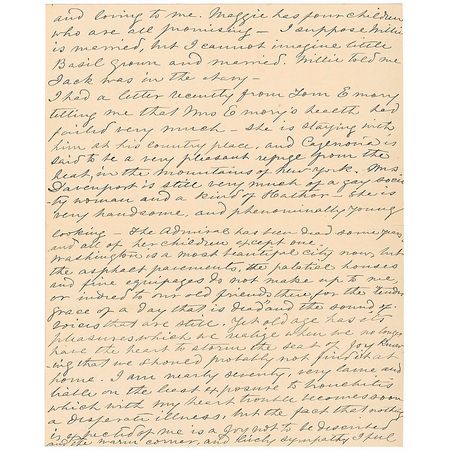 and loving to me. Maggie has four children
who are all promising – I suppose Willie
is married, but I cannot imagine little
Basil grown and married. Willie told me
Jack was in the Navy –
I had a letter recently from Tom Emory
telling me that Mrs Emory's health had
failed very much – she is staying with
him at his country place, and Cazenovia is
said to be a very pleasant refuge from the
heat, in the mountains of New York. Mrs
Davenport is still very much of a gay socie-
ty woman and a kind of – She is
very handsome, and phenominally young
looking – The Admiral has been dead some years,
and all of her children except one.
Washington is a most beautiful city now, but
the asphalt pavements, the palatial houses
and fine equipages do not make up to me
or indeed to our old friends there, for "the tender
grace of a day that is dead" and the sound of
voices that are still. Yet old age has its
pleasures which we realize when we no longer
have the heart to storm the seat of joy know-
ing that we should probably not find it at
home. I am nearly seventy, very lame and
liable on the least exposure to bronchitis
which with my heart trouble becomes soon
a desperate illness. but the fact that nothing
is expected of me is a joy not to be described
and the warm corner, and lively sympathy I feel